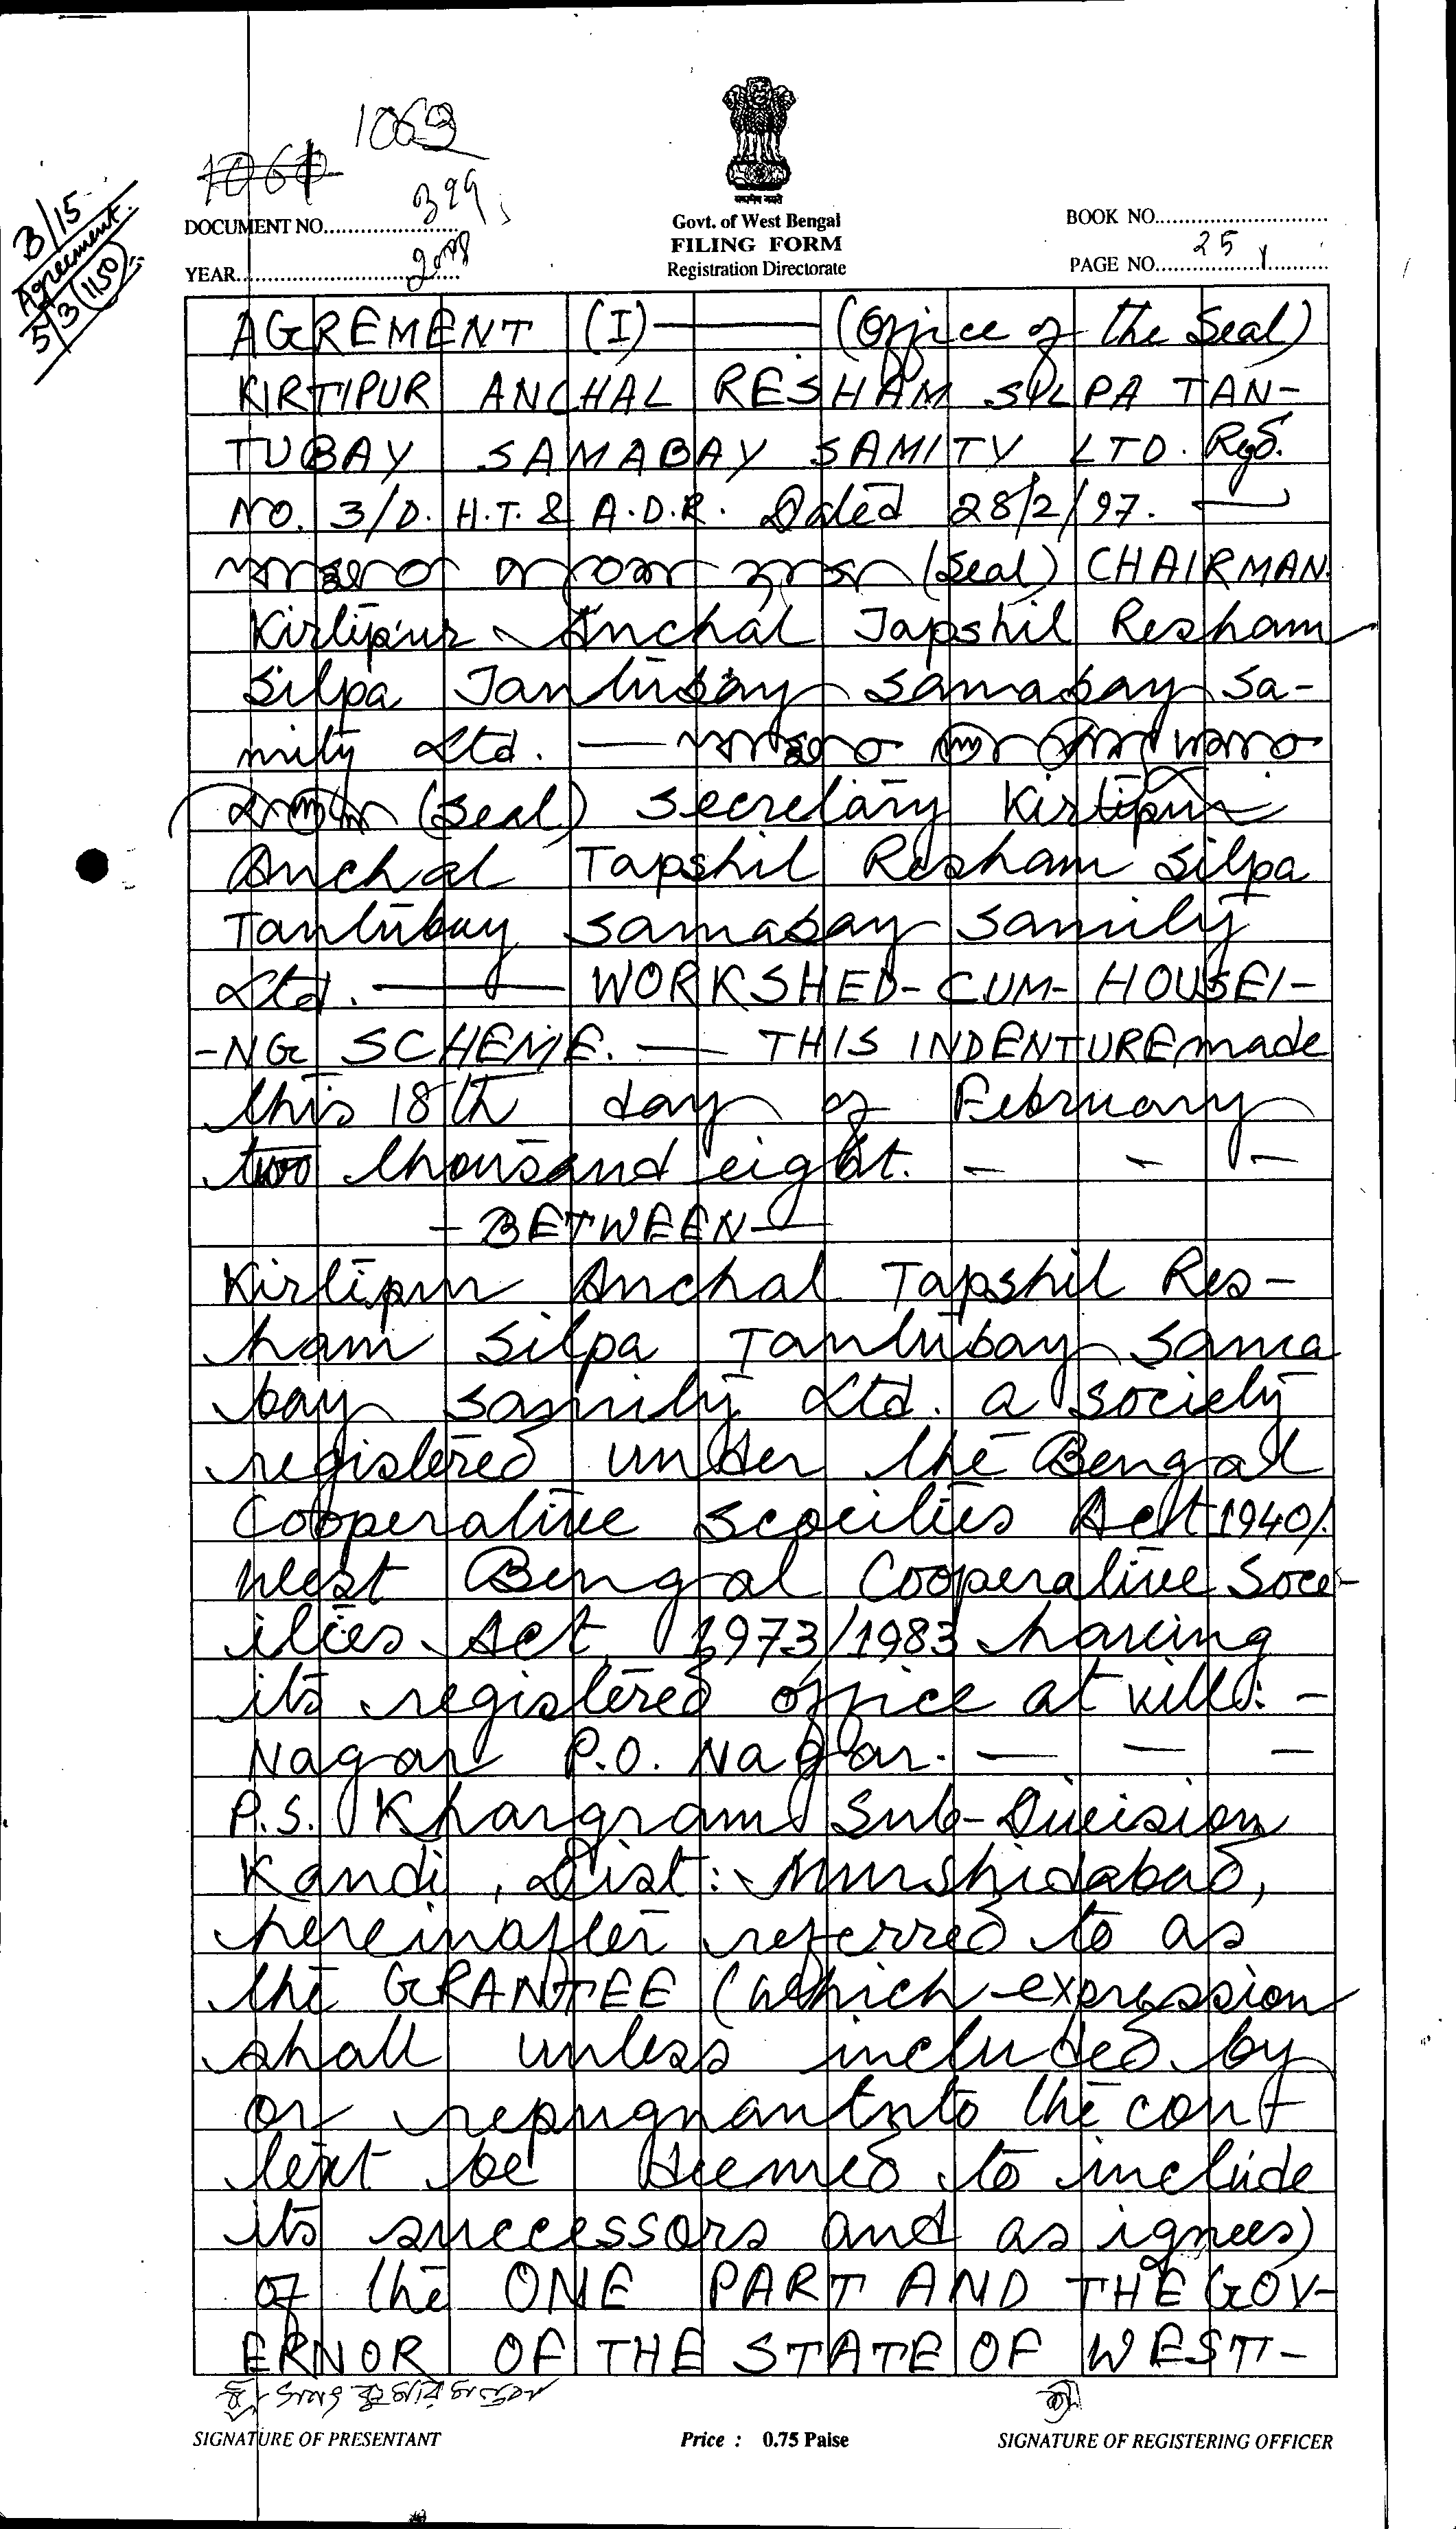 1063
1061
399
B/15
Agreement.
5/3 (1150)
सत्यमेव जयते
Govt. of West Bengal
FILING FORM
Registration Directorate
DOCUMENT NO.
YEAR 2008
BOOK NO.
PAGE NO. 25
AGREMENT (I) — (Office of the Seal)
KIRTIPUR ANCHAL RESHAM SILPA TAN-
TUBAY SAMABAY SAMITY LTD. Rgd.
NO. 3/D. H.T. & A.D.R. Dated 28/2/97. —
(Seal) CHAIRMAN.
Kirtipur Anchal Tapshil Resham
Silpa Tantubay Samabay Sa-
mity Ltd. —
(Seal) Secretary Kirtipur
Anchal Tapshil Resham Silpa
Tantubay Samabay Samity
Ltd. — WORKSHED-CUM-HOUSEI-
-NG SCHEME. — THIS INDENTURE made
this 18th day of February
two thousand eight. - - -
- BETWEEN -
Kirtipur Anchal Tapshil Res-
ham Silpa Tantubay Sama
bay Samity Ltd. a Society
registered under the Bengal
Cooperative Scoeities Act 1940/.
West Bengal Cooperative Soce-
ities Act, 1973/1983 having
its registered office at vill: -
Nagar P.O. Nagar. — — —
P.S. Khargram Sub-Division
Kandi, Dist: Murshidabad,
hereinafter referred to as
the GRANTEE (which expression
shall unless included by
or repugnant to the con-
text be deemed to include
its successors and as ignees)
of the ONE PART AND THE GOV-
ERNOR OF THE STATE OF WEST-
SIGNATURE OF PRESENTANT
Price : 0.75 Paise
SIGNATURE OF REGISTERING OFFICER